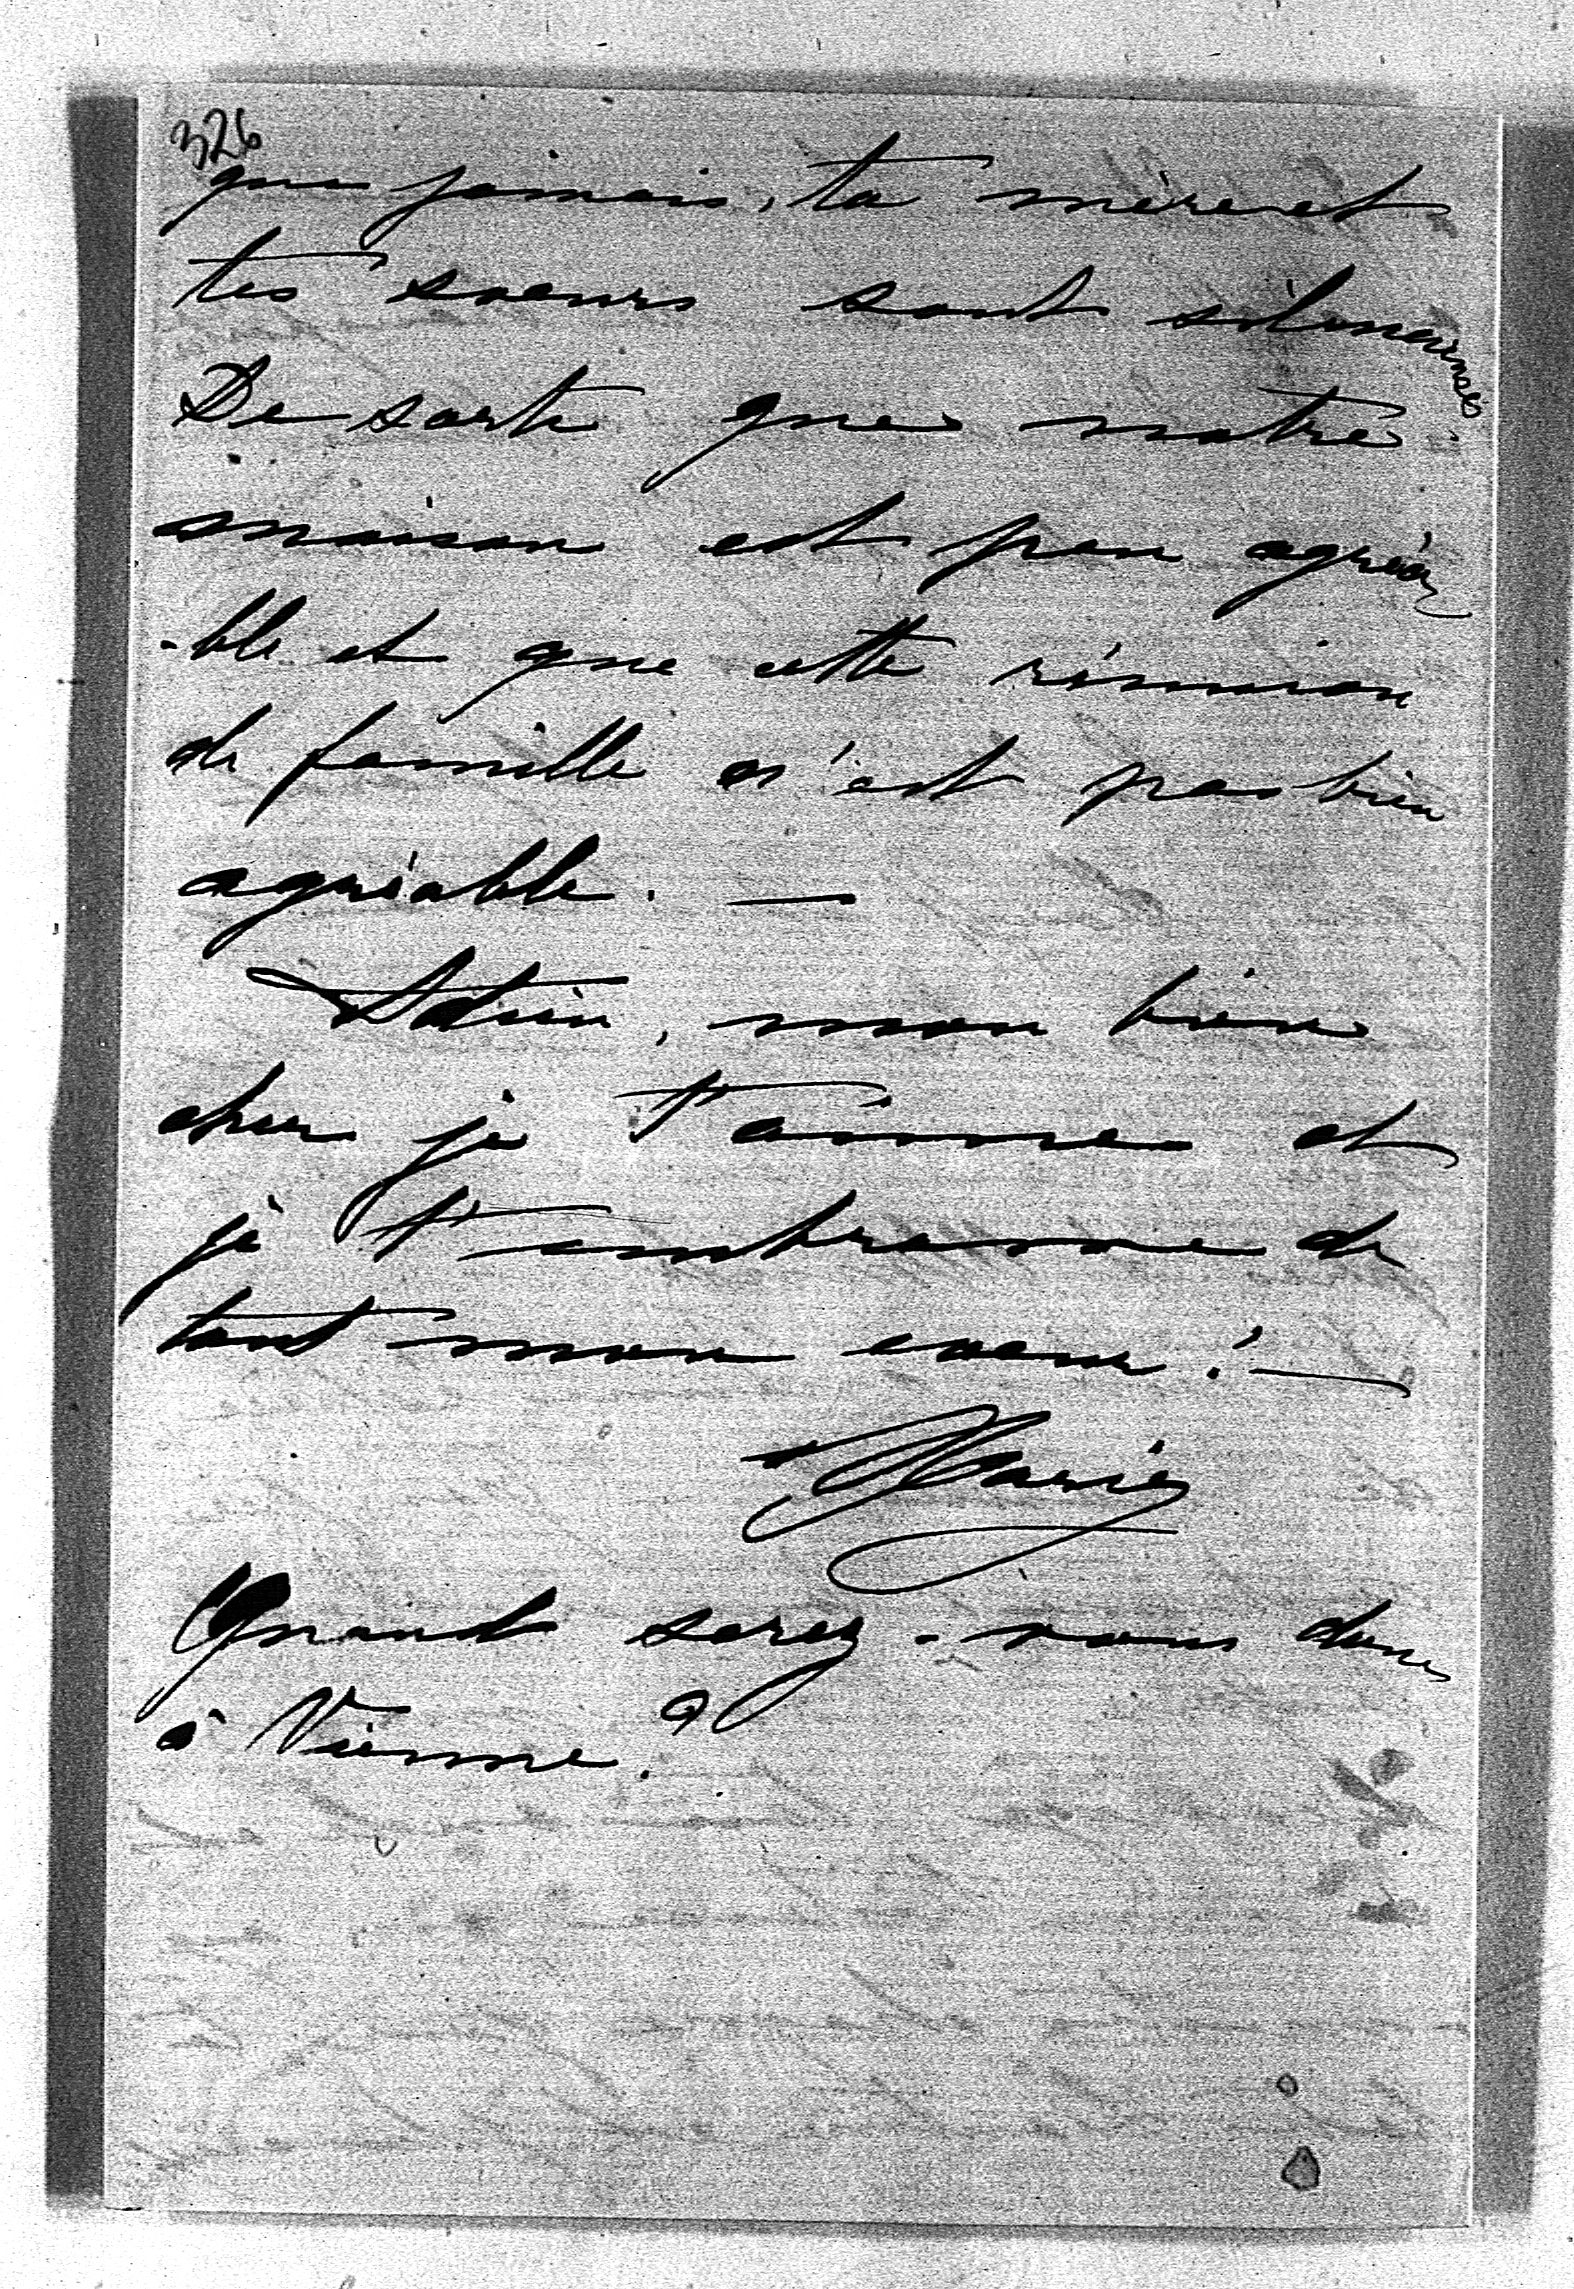 326
que jamais, ta mère et
tes soeurs sont silencieuses
De sorte que notre
maison est peu agréa
-ble et que cette réunion
de famille n'est pas bien
agréable. —
Adieu, mon bien
cher je t'aime et
je t'embrasse de
tout mon coeur! —
Marie
Quand serez-vous donc
à Vienne?